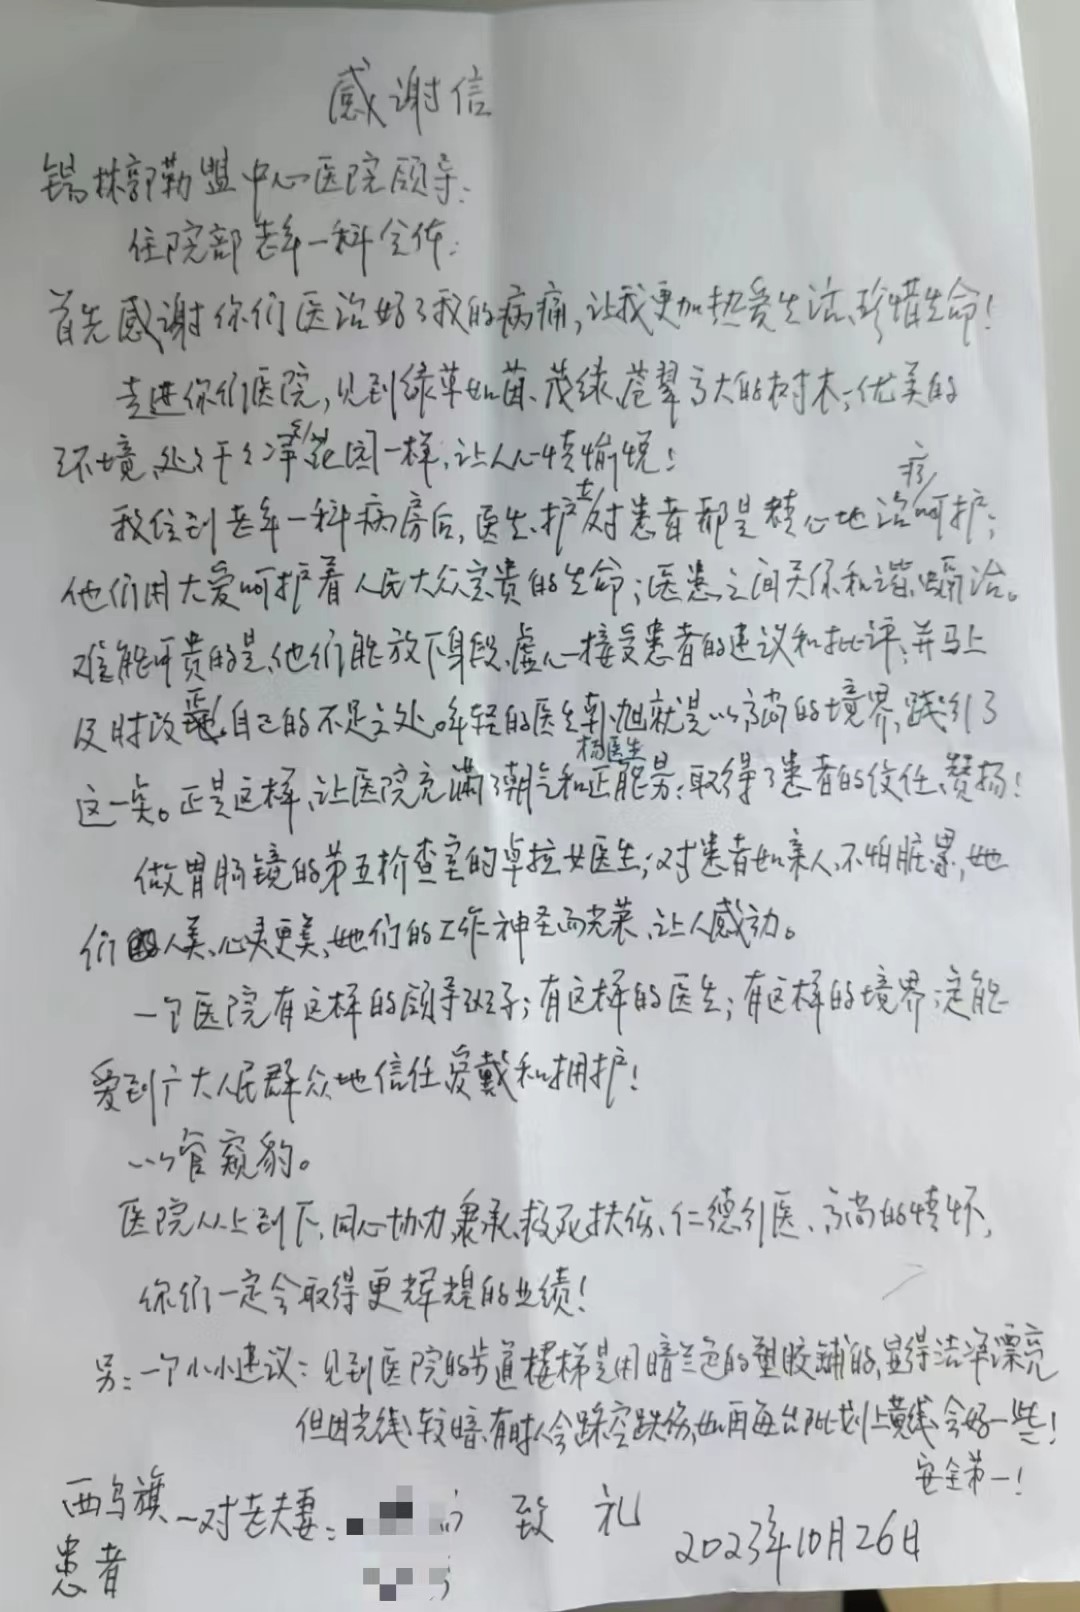 感谢信
锡林郭勒盟中心医院领导：
住院部老年一科全体：
首先感谢你们医治好了我的病痛，让我更加热爱生活、珍惜生命！
走进你们医院，见到绿草如茵、茂绿、苍翠高大的树木；优美的
环境、处处干干净净花园一样，让人心情愉悦！
我住到老年一科病房后，医生、护士对患者都是精心地治疗呵护；
他们用大爱呵护着人民大众宝贵的生命；医患之间关系和谐、融洽。
难能可贵的是、他们能放下身段、虚心接受患者的建议和批评；并马上
及时改正自己的不足之处。年轻的医生朝旭就是以高尚的境界，践行了
杨医生
这一点。正是这样、让医院充满了朝气和正能量；取得了患者的信任、赞扬！
做胃肠镜的第五检查室的卓拉女医生；对患者如亲人、不怕脏累，她
们人美、心灵更美，她们的工作神圣而光荣、让人感动。
一个医院有这样的领导班子；有这样的医生；有这样的境界；定能
受到广大人民群众地信任爱戴和拥护！
以管窥豹。
医院从上到下、同心协力，秉承、救死扶伤、仁德行医、高尚的情怀，
你们一定会取得更辉煌的业绩！
另：一个小小建议：见到医院的步道楼梯是用暗兰色的塑胶铺的，显得洁净漂亮
但因光线较暗、有时人会踩空跌伤，如再每台阶划上黄线、会好一些！
安全第一！
西乌旗
患者
一对老夫妻：
致 礼
2023年10月26日